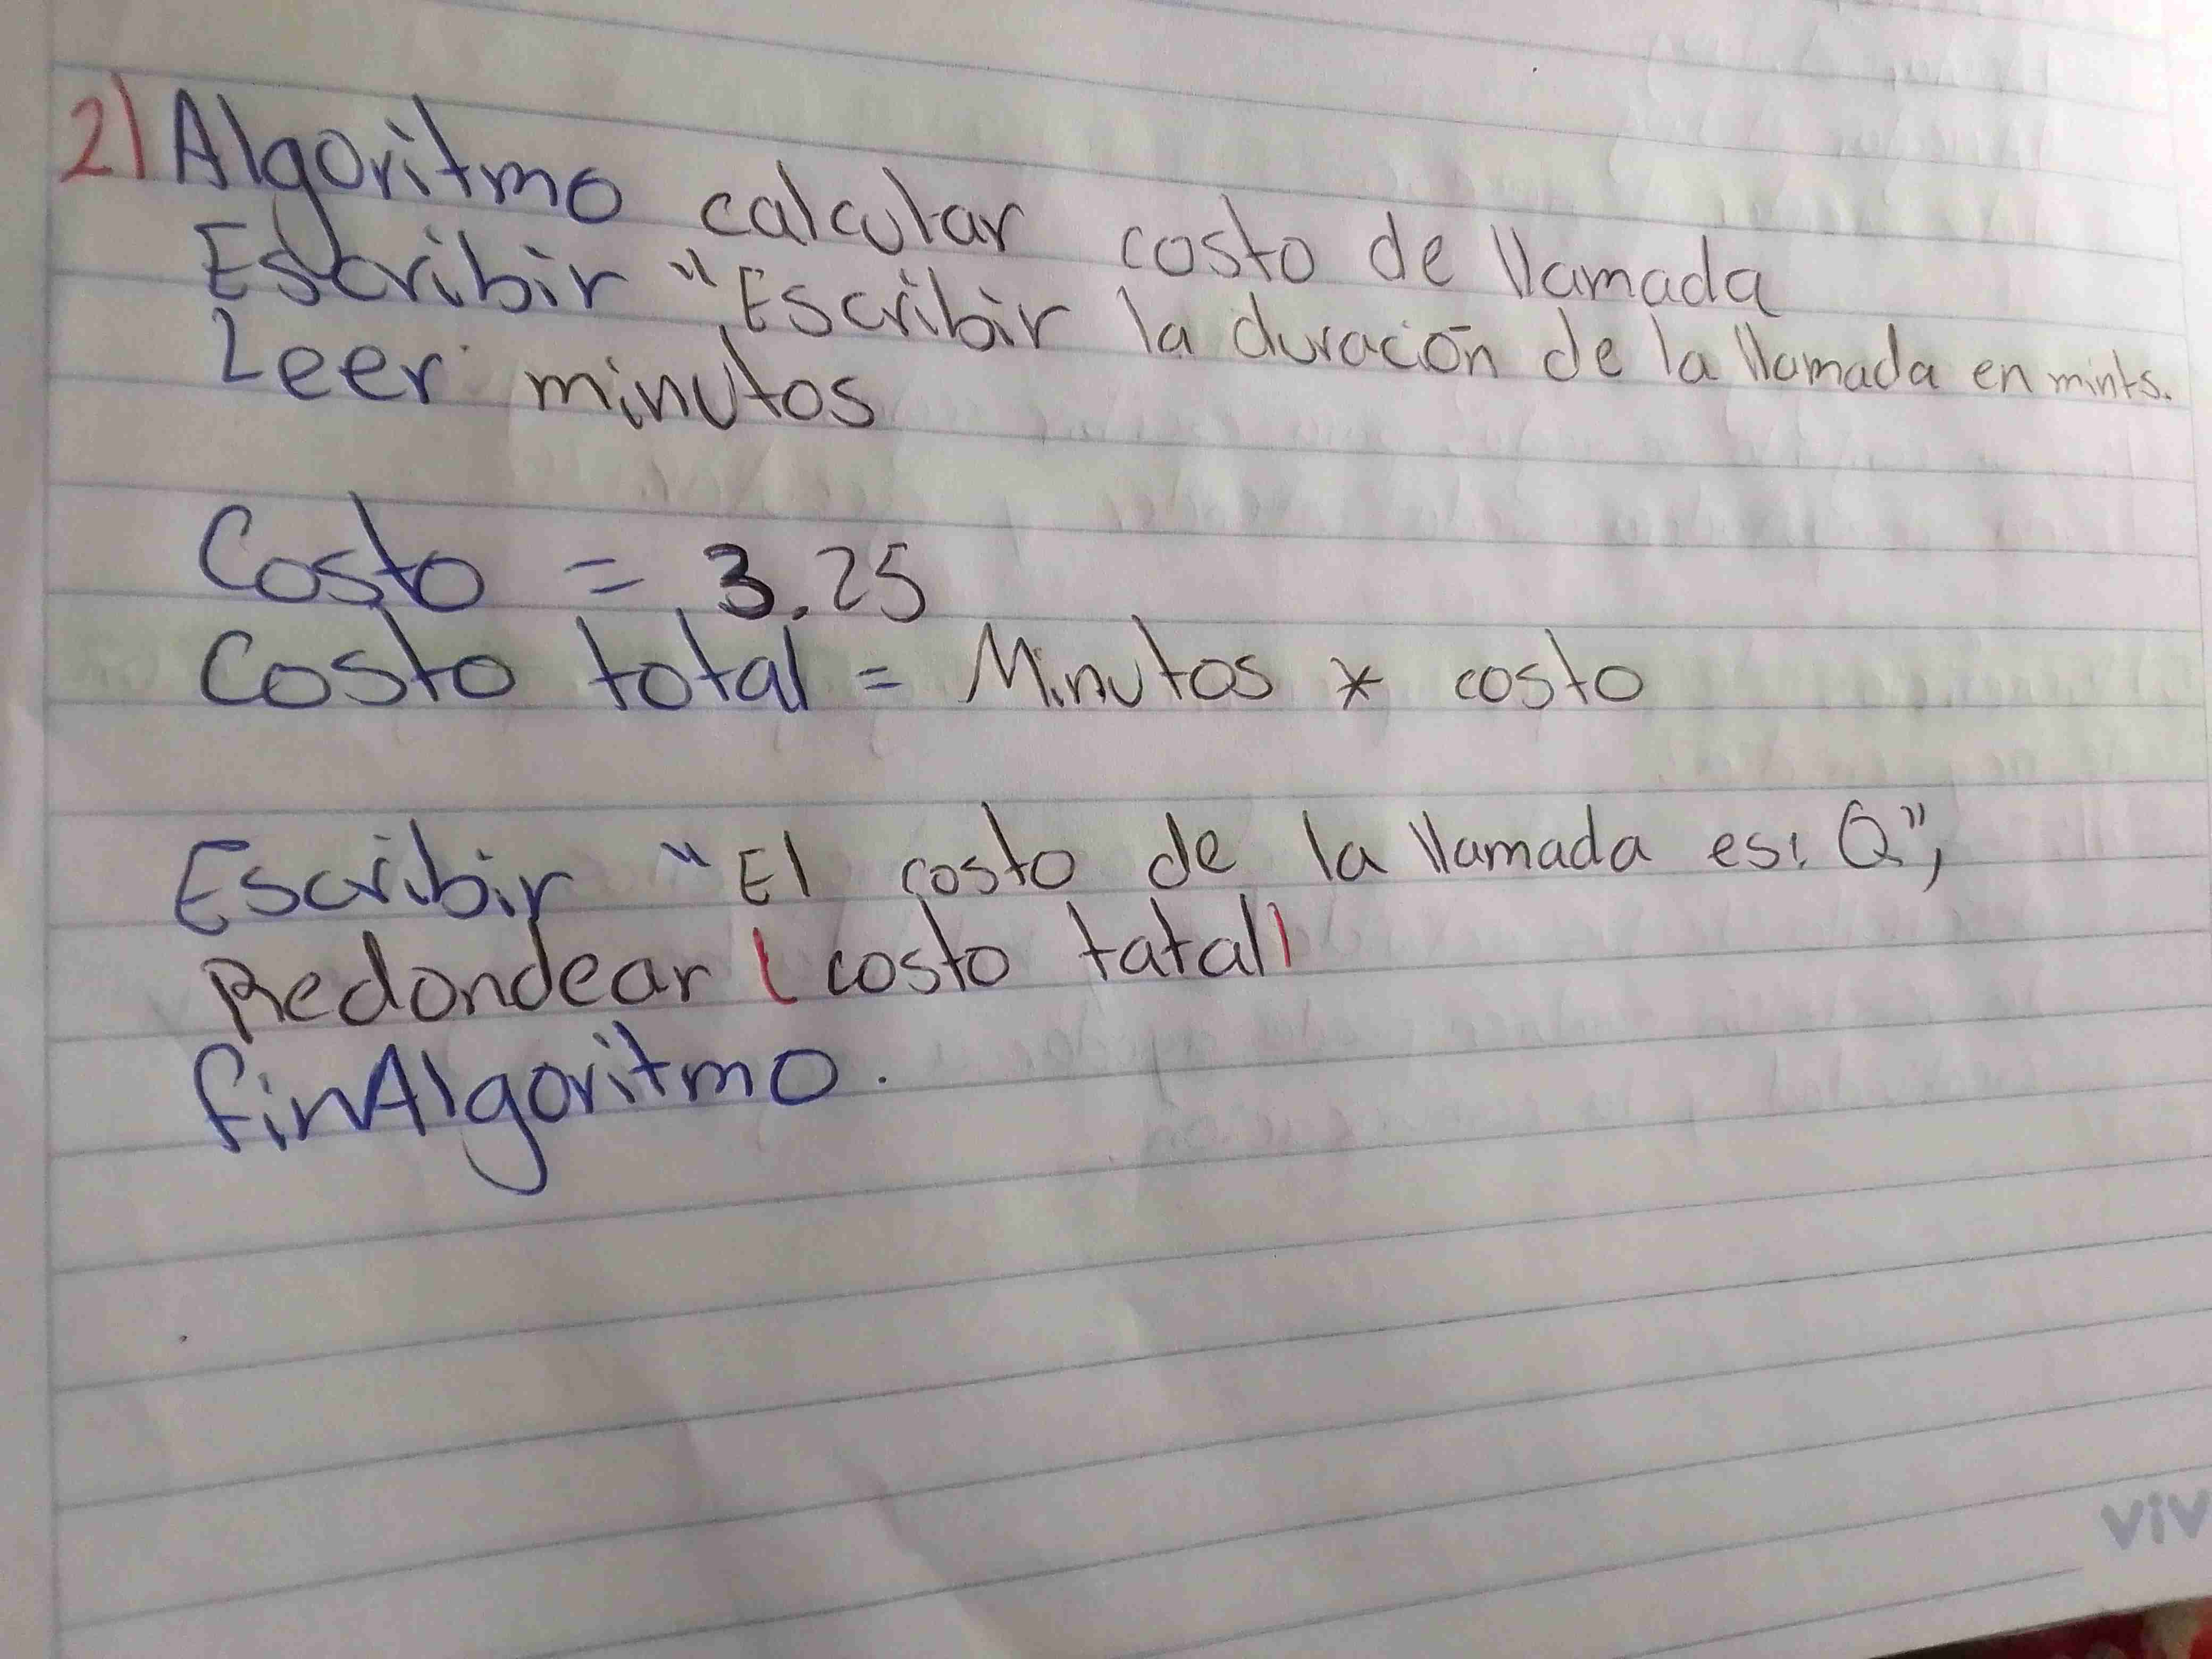 2) Algoritmo calcular costo de llamada
Escribir "Escribir la duración de la llamada en mints.
Leer minutos
Costo = 3.25
Costo total = Minutos * costo
Escribir "El costo de la llamada es: Q",
Redondear ( costo tatal)
finAlgoritmo.
viv